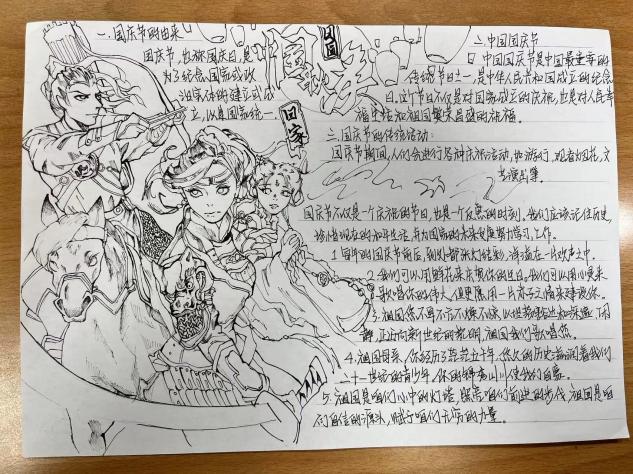 一.国庆节的由来
国庆节,也称国庆日,是
为了纪念国家或政
治实体的建立或成
立,以及国家统一.
回家
二.中国国庆节
中国国庆节是中国最重要的
传统节日之一,是中华人民共和国成立的纪念
日.这个节日不仅是对国家成立的庆祝,也是对人民幸
福生活和祖国繁荣昌盛的祝福.
三.国庆节的传统活动:
国庆节期间,人们会进行各种庆祝活动,如游行,观看烟花,文
艺演出等.
国庆节不仅是一个庆祝的节日,也是一个反思的时刻.我们应该记住历史,
珍惜现在的和平生活,并为国家的未来发展努力学习,工作.
1.每年的国庆节前后,到处都张灯结彩,洋溢在一片欢声之中.
2.我们可以用鲜花来庆祝你的生日,我们可以用心灵来
歌唱你的伟大,但更愿用一片赤子之情来建设你.
3.祖国您不再
静,正迈向新世纪的黎明.祖国我们歌唱您.
4.祖国母亲,你经历了五十年,悠久的历史滋润着我们
二十一世纪的青少年,你的锦绣山川使我们自豪.
5.祖国是咱们心中的灯塔,照亮咱们前进的步伐.祖国是咱
们自信的源头,赋予咱们无穷的力量.